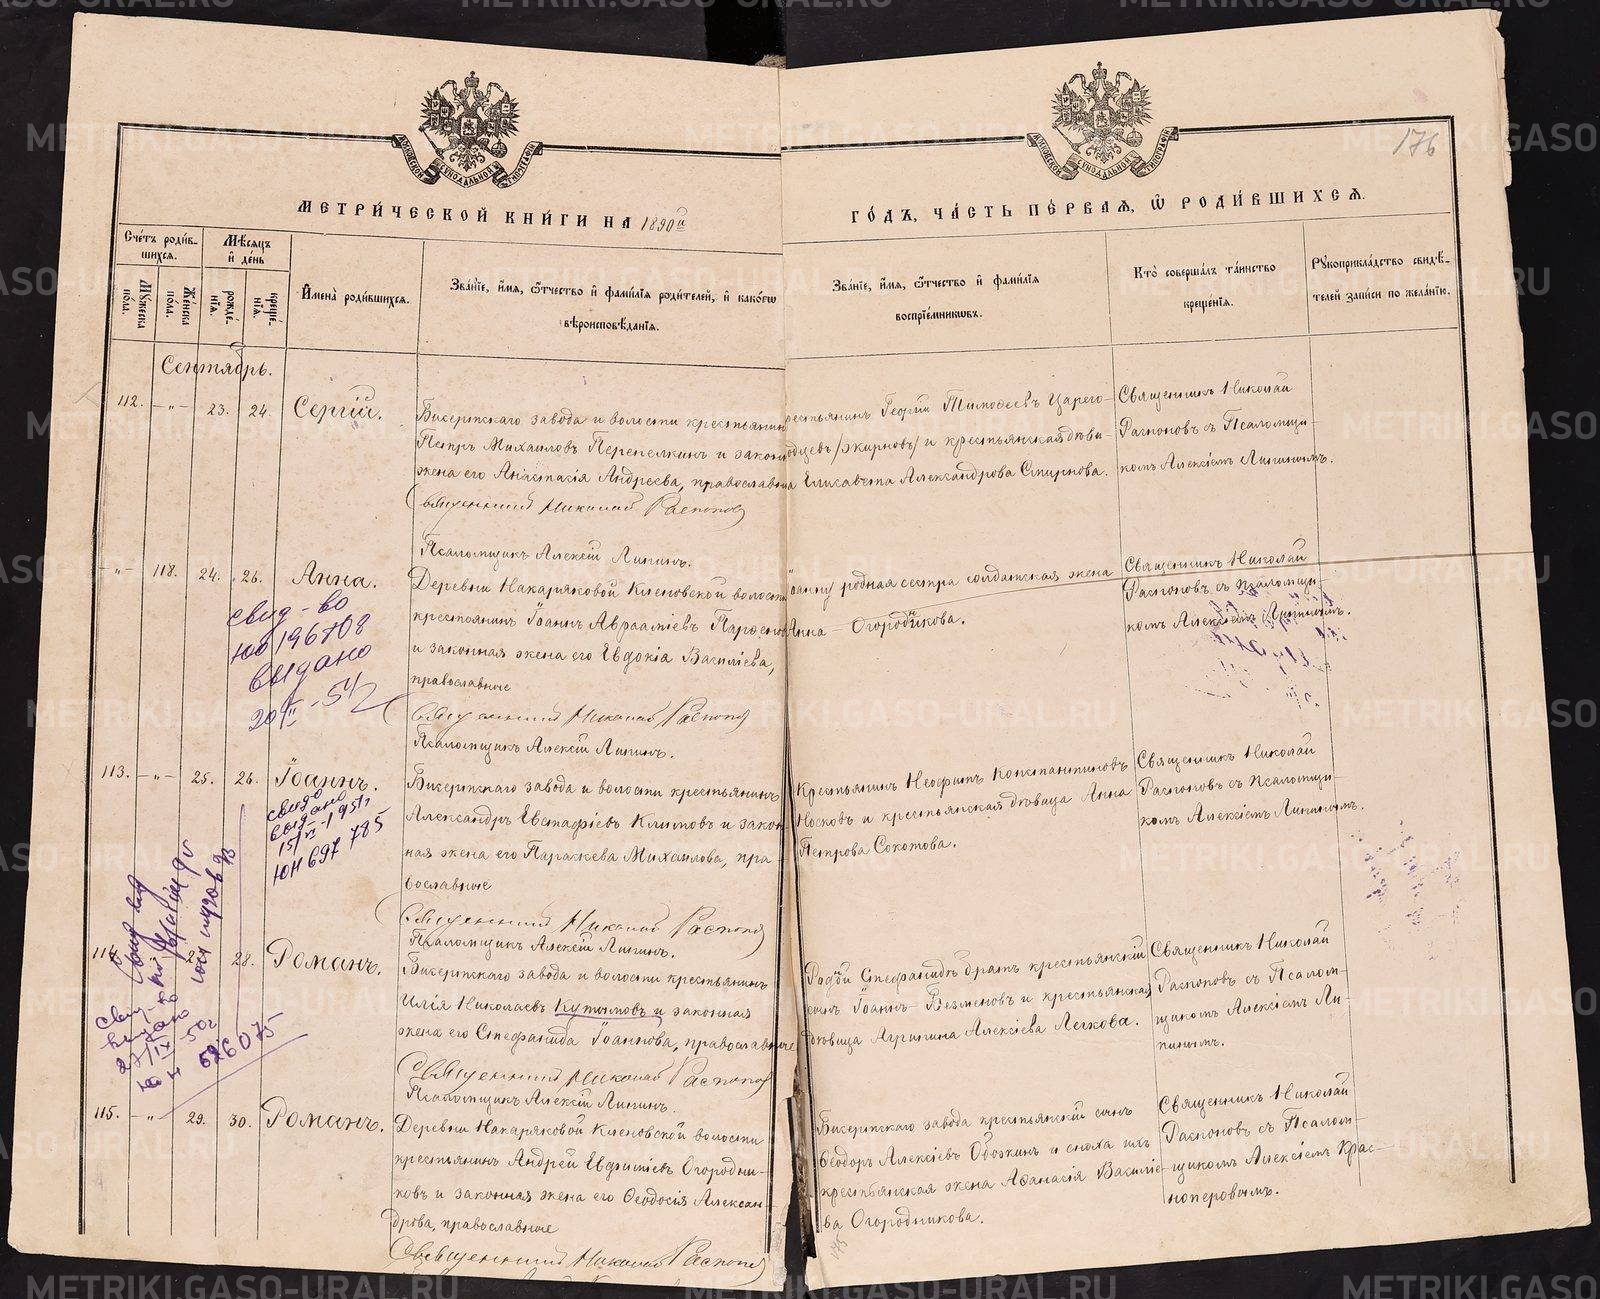 176
МЕТРИ́ЧЕСКОЙ КНИ́ГИ НА 1890й
ГО́ДЪ, ЧА́СТЬ ПЕ́РВАЯ, Ѡ҆ РОДИ́ВШИХСЯ.
Сче́тъ роди́в-
шихся.
Му́жеска по́ла.
Же́нска по́ла.
Мѣ́сяцъ и҆ де́нь
рожде́-
нїя.
креще́-
нїя.
И҆мена̀ роди́вшихся.
Зва́нїе, и҆́мя, ѻ҆́тчество и҆ фами́лїя роди́телей, и҆ како́гѡ
вѣроисповѣ́данїя.
Зва́нїе, и҆́мя, ѻ҆́тчество и҆ фами́лїя
воспрїе́мниковъ.
Кто̀ соверша́лъ та́инство
креще́нїя.
Рꙋкоприкла́дство свидѣ́-
телей за́писи по жела́нїю.
Сентябрь.
112. — " — 23. 24. Сергій.
Бисертскаго завода и волости крестьянин
Петръ Михаиловъ Перепелкинъ и закон
жена его Анастасія Андреева, православн
Священникъ Николай Распопов
Псаломщикъ Алексій Липинъ.
рестьянинъ Георгій Тимоѳеевъ Царего-
родцевъ /Жирновъ/ и крестьянская дѣви-
ца Елисавета Александрова Смирнова.
Священникъ Николай
Распоповъ съ Псаломщи-
комъ Алексіемъ Липинымъ.
— " — 118. 24. 26. Анна.
Деревни Накаряковой Кленовской волости
крестьянинъ Іоаннъ Авраамiевъ Парѳенов
и законная жена его Евдокія Василіева,
православные
Священникъ Николай Распопов
Псаломщикъ Алексій Липинъ.
Іоанну родная сестра солдатская жена
Анна — Огородникова.
Священникъ Николай
Распоповъ съ псаломщи-
комъ Алексіемъ Липинымъ.
свид-во
ЮО 196708
выдано
20/II-54
113. — " — 25. 26. Іоаннъ.
Бисертскаго завода и волости крестьянинъ
Александръ Евстафіевъ Климовъ и закон
ная жена его Параскева Михаилова, пра-
вославные
Священникъ Николай Распопов
Псаломщикъ Алексій Липинъ.
Крестьянинъ Неофитъ Константиновъ
Носковъ и крестьянская дѣвица Анна
Петрова Сокотова.
Священникъ Николай
Распоповъ съ псаломщи-
комъ Алексіемъ Липинымъ.
свид-во
выдано
ЮН 697 785
114. 28. Романъ.
Бисертскаго завода и волости крестьянинъ
Илія Николаевъ Кутымовъ и законная
жена его Стефанида Іоаннова, православные
Священникъ Николай Распопов
Псаломщикъ Алексій Липинъ.
Родной Стефанидѣ братъ крестьянскій
сынъ Іоаннъ — Безменовъ и крестьянская
дѣвица Агрипина Алексіева Легкова.
Священникъ Николай
Распоповъ съ Псалом-
щикомъ Алексіемъ Ли-
пинымъ.
27/IX 50г
626075
115. — " 29. 30. Романъ.
Деревни Накаряковой Кленовской волости
крестьянинъ Андрей Евфиміевъ Огородни-
ковъ и законная жена его Ѳеодосія Алексан-
дрова, православные
Священникъ Николай Распопов
Бисертскаго завода крестьянскій сынъ
Ѳеодоръ Алексіевъ Обожинъ и сноха ихъ
крестьянская жена Аѳанасія Василіе-
ва Огородникова.
Священникъ Николай
Распоповъ съ Псалом-
щикомъ Алексіемъ Крас-
ноперовымъ.
METRIKI.GASO-URAL.RU